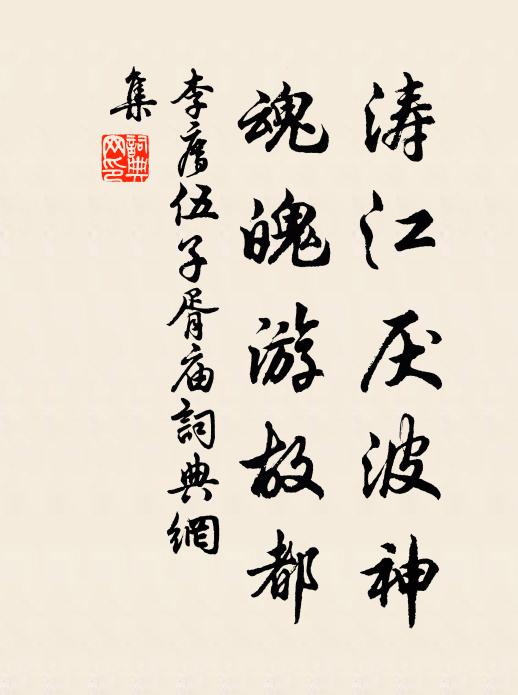 涛江厌波神
魂魄游故都
李廌伍子胥庙詞典網
集
詞典
网印